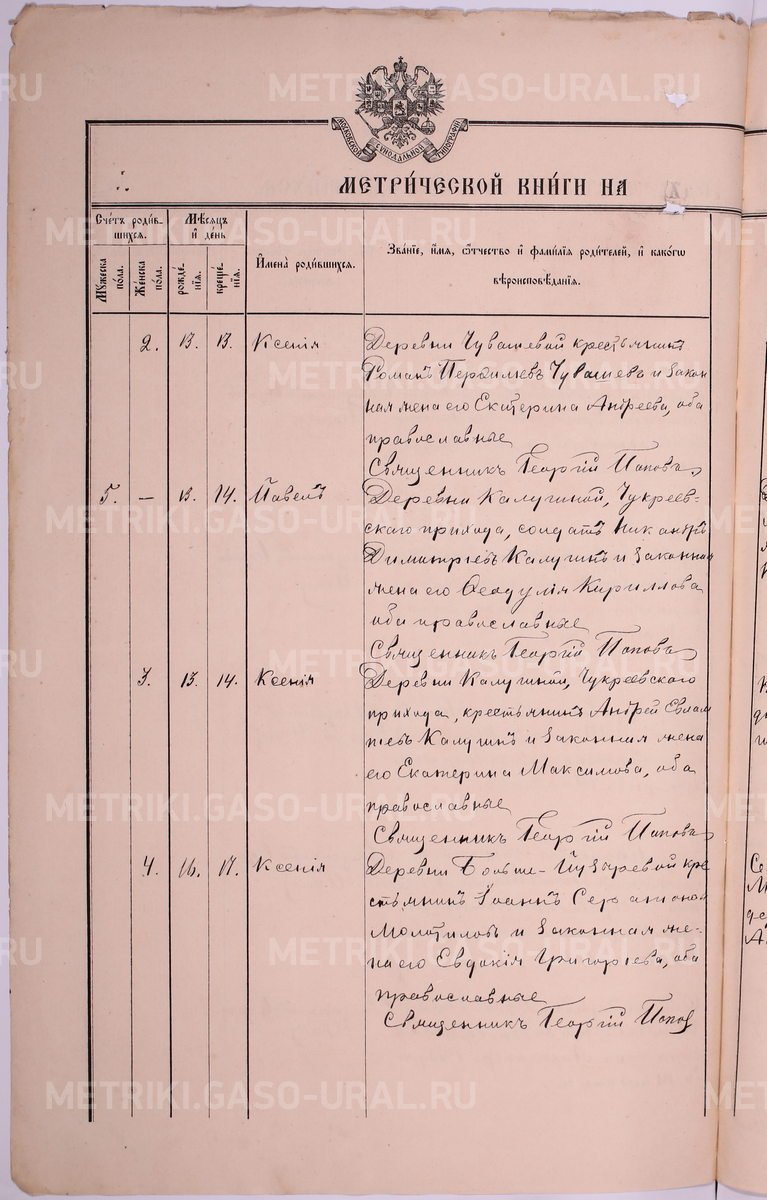 METRIKI.GASO-URAL.RU
МОСКОВСКОЙ СѴНОДАЛЬНОЙ ТИПОГРАФІИ
МЕТРИ́ЧЕСКОЙ КНИ́ГИ НА
Сче́тъ роди́в-
шихся.
Мѣ́сяцъ
и҆ де́нь
Мꙋ́жеска по́ла.
Же́нска по́ла.
рожде́-
нїя.
креще́-
нїя.
И҆мена̀ роди́вшихся.
Зва́нїе, и҆́мя, ѻ҆́тчество и҆ фамилїя роди́телей, и҆ како́гѡ
вѣроисповѣ́данїя.
2. 13. 13. Ксенія
Деревни Чувашевой крестьянинъ
Романъ Чувашевъ и закон
ная жена его Екатерина Андреева, оба
православные
Священникъ Георгій Поповъ
5. — 13. 14. Павелъ
Деревни Калугиной, Чукреев-
скаго прихода, солдатъ Никандръ
Димитріевъ Калугинъ и законная
жена его Феодулія Кириллова
оба православные
Священникъ Георгій Поповъ
3. 13. 14. Ксенія
Деревни Калугиной, Чукреевского
прихода, крестьянинъ Андрей Евлам
піевъ Калугинъ и законная жена
его Екатерина Максимова, оба
православные
Священникъ Георгій Поповъ
4. 16. 17. Ксенія
Деревни кре
стьянинъ Іоаннъ
Молотиловъ и законная же-
на его Евдокія Григорьева, оба
православные
Священникъ Георгій Попов